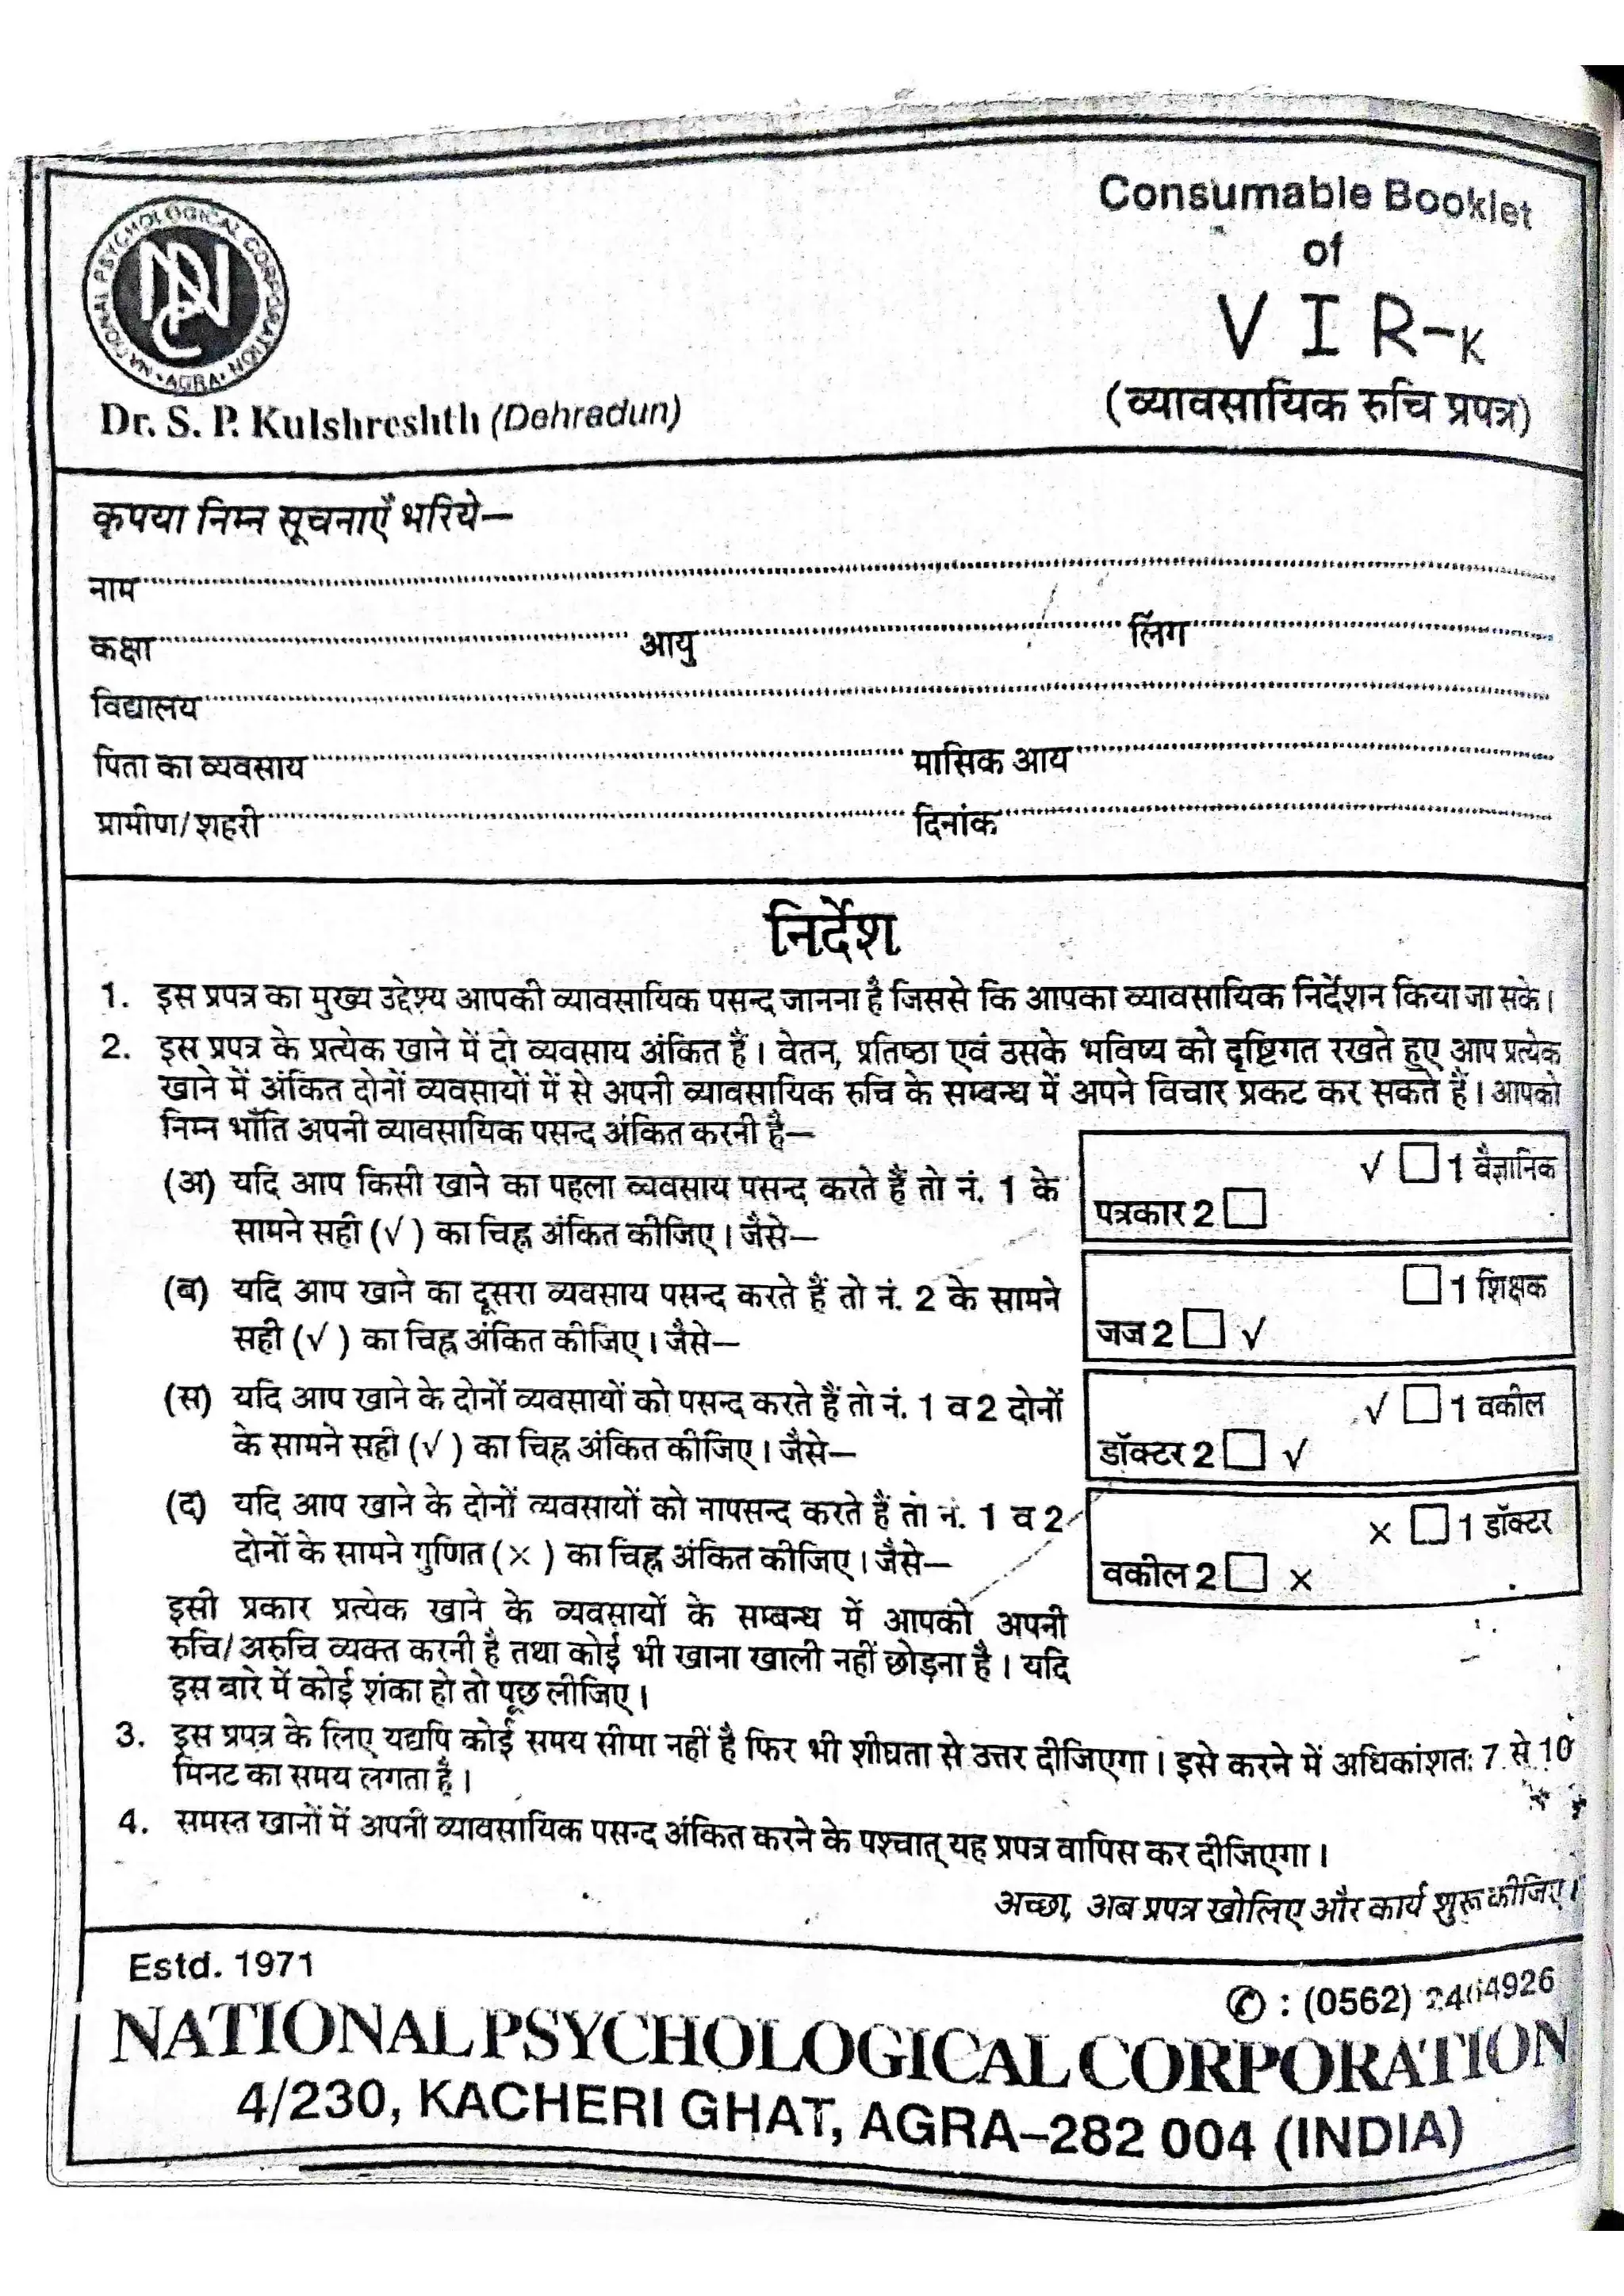 NATIONAL PSYCHOLOGICAL CORPORATION
AGRA
Consumable Booklet
of
V I R-K
(व्यावसायिक रुचि प्रपत्र)
Dr. S. P. Kulshreshth (Dehradun)
कृपया निम्न सूचनाएँ भरिये—
नाम
कक्षा आयु लिंग
विद्यालय
पिता का व्यवसाय मासिक आय
ग्रामीण/शहरी दिनांक
निर्देश
1. इस प्रपत्र का मुख्य उद्देश्य आपकी व्यावसायिक पसन्द जानना है जिससे कि आपका व्यावसायिक निर्देशन किया जा सके।
2. इस प्रपत्र के प्रत्येक खाने में दो व्यवसाय अंकित हैं। वेतन, प्रतिष्ठा एवं उसके भविष्य को दृष्टिगत रखते हुए आप प्रत्येक
खाने में अंकित दोनों व्यवसायों में से अपनी व्यावसायिक रुचि के सम्बन्ध में अपने विचार प्रकट कर सकते हैं। आपको
निम्न भाँति अपनी व्यावसायिक पसन्द अंकित करनी है—
(अ) यदि आप किसी खाने का पहला व्यवसाय पसन्द करते हैं तो नं. 1 के
सामने सही (√ ) का चिह्न अंकित कीजिए। जैसे—
√ □ 1 वैज्ञानिक
पत्रकार 2 □
(ब) यदि आप खाने का दूसरा व्यवसाय पसन्द करते हैं तो नं. 2 के सामने
सही (√ ) का चिह्न अंकित कीजिए। जैसे—
□ 1 शिक्षक
जज 2 □ √
(स) यदि आप खाने के दोनों व्यवसायों को पसन्द करते हैं तो नं. 1 व 2 दोनों
के सामने सही (√ ) का चिह्न अंकित कीजिए। जैसे—
√ □ 1 वकील
डॉक्टर 2 □ √
(द) यदि आप खाने के दोनों व्यवसायों को नापसन्द करते हैं तो नं. 1 व 2
दोनों के सामने गुणित (× ) का चिह्न अंकित कीजिए। जैसे—
× □ 1 डॉक्टर
वकील 2 □ ×
इसी प्रकार प्रत्येक खाने के व्यवसायों के सम्बन्ध में आपको अपनी
रुचि/अरुचि व्यक्त करनी है तथा कोई भी खाना खाली नहीं छोड़ना है। यदि
इस बारे में कोई शंका हो तो पूछ लीजिए।
3. इस प्रपत्र के लिए यद्यपि कोई समय सीमा नहीं है फिर भी शीघ्रता से उत्तर दीजिएगा। इसे करने में अधिकांशतः 7 से 10
मिनट का समय लगता है।
4. समस्त खानों में अपनी व्यावसायिक पसन्द अंकित करने के पश्चात् यह प्रपत्र वापिस कर दीजिएगा।
अच्छा, अब प्रपत्र खोलिए और कार्य शुरू कीजिए।
Estd. 1971
✆ : (0562)
NATIONAL PSYCHOLOGICAL CORPORATION
4/230, KACHERI GHAT, AGRA–282 004 (INDIA)